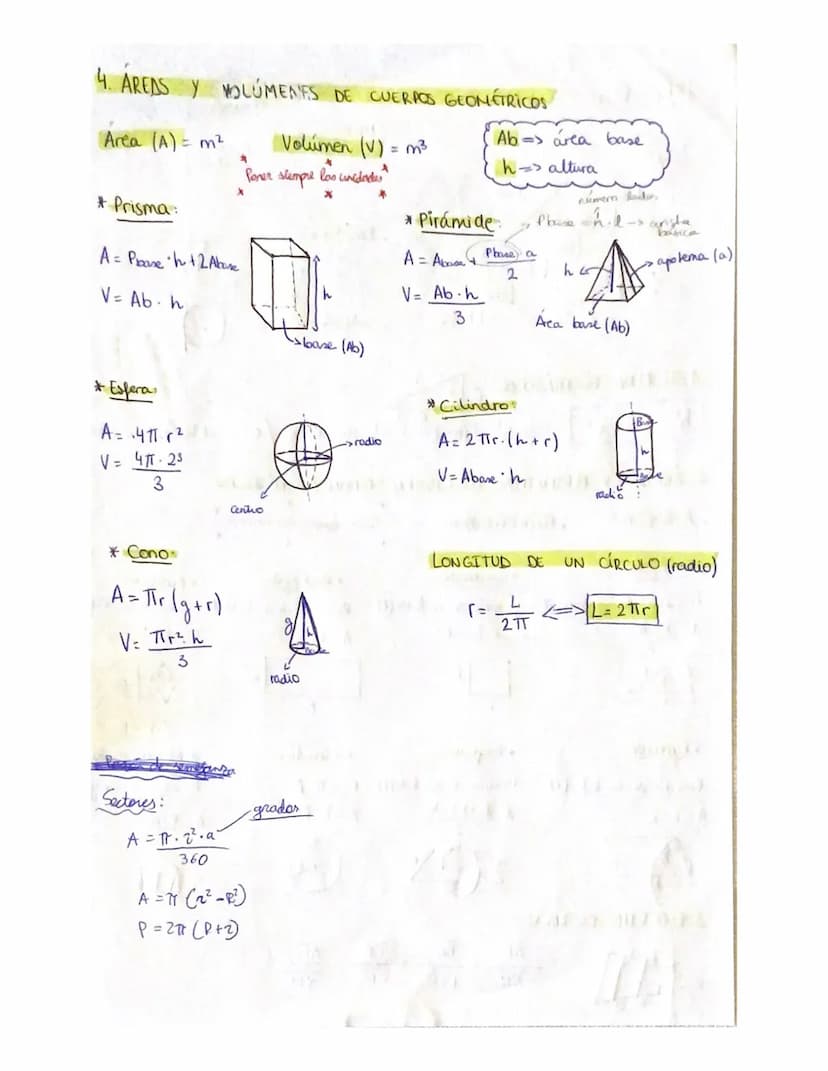 4. ÁREAS Y VOLÚMENES DE CUERPOS GEOMÉTRICOS
Área (A) = m²
Volúmen (V) = m³
Poner siempre las unidades
Ab => área base
h => altura
* Prisma:
A = Pbase · h + 2 Abase
V = Ab · h
h
base (Ab)
* Pirámide:
número lados
Pbase = n · l →
básica
A = Abase + Pbase · a / 2
V = Ab · h / 3
h
apotema (a)
Áca base (Ab)
* Esfera:
A = 4π r²
V = 4π · 2³ / 3
radio
centro
* Cilindro:
A = 2πr · (h + r)
V = Abase · h
Base
h
Base
radio
* Cono:
A = πr (g + r)
V = πr² · h / 3
g
h
Base
radio
LONGITUD DE UN CÍRCULO (radio)
r = L / 2π <=> L = 2πr
Sectores:
grados
A = π · r² · a / 360
A = π (r² - R²)
P = 2π (P + 2)